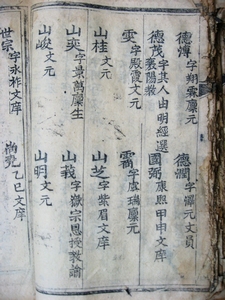 德溥 字翔霖廪元 德潤 字澤元文員
德茂 字其人由明經選襄陽教 國弼 康熙甲申文庠
雯 字殿霞文元 字虞瑞廪元
山桂 文元 山芝 字紫眉文庠
山奕 字景萬廪生 山莪 字嶽宗恩授教諭
山峻 文元 山明 文元
世宗 字永祚文庠 乙巳文庠